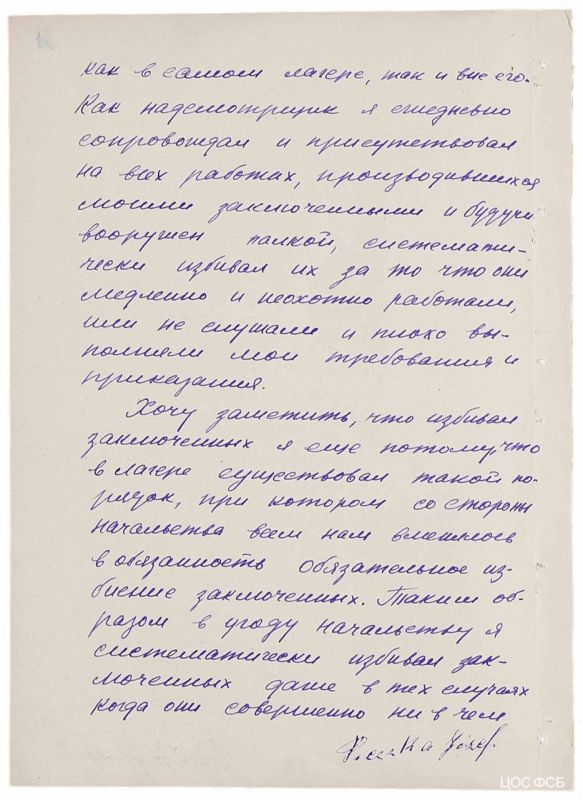 как в самом лагере, так и вне его.
Как надсмотрщик я ежедневно
сопровождал и присутствовал
на всех работах, производившихся
моими заключенными и будучи
вооружен палкой, системати-
чески избивал их за то что они
медленно и неохотно работали,
или не слушали и плохо вы-
полняли мои требования и
приказания.
Хочу заметить, что избивал
заключенных я еще потому, что
в лагере существовал такой по-
рядок, при котором со стороны
начальства всем нам вменялось
в обязанность обязательное из-
биение заключенных. Таким об-
разом в угоду начальству я
систематически избивал зак-
люченных даже в тех случаях
когда они совершенно ни в чем
Józef.
ЦОС ФСБ